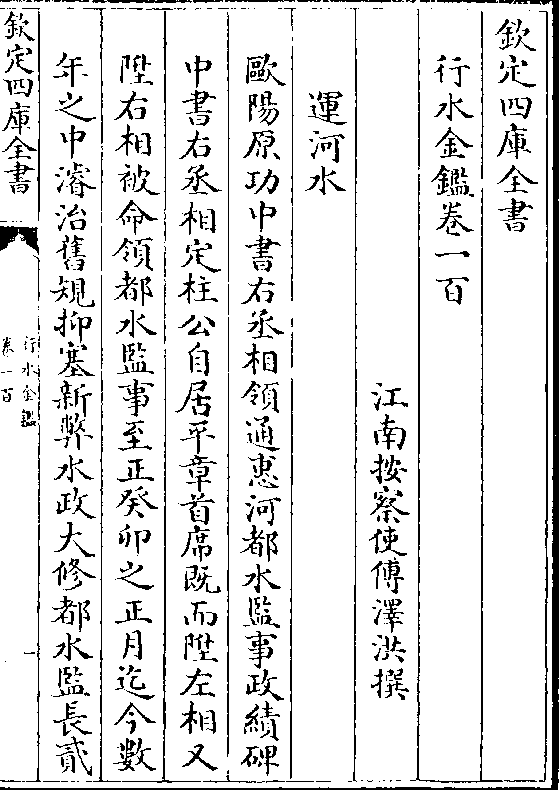 欽定四庫全書
行水金鑑卷一百
江南按察使傅澤洪撰
運河水
歐陽原功中書右丞相領通惠河都水監事政績碑
中書右丞相定柱公自居平章首席既而陞左相又
陞右相被命領都水監事至正癸卯之正月迄今數
年之中濬治舊規抑塞新弊水政大修都水監長貳
欽定四庫全書
行水金鑑
卷一百
一